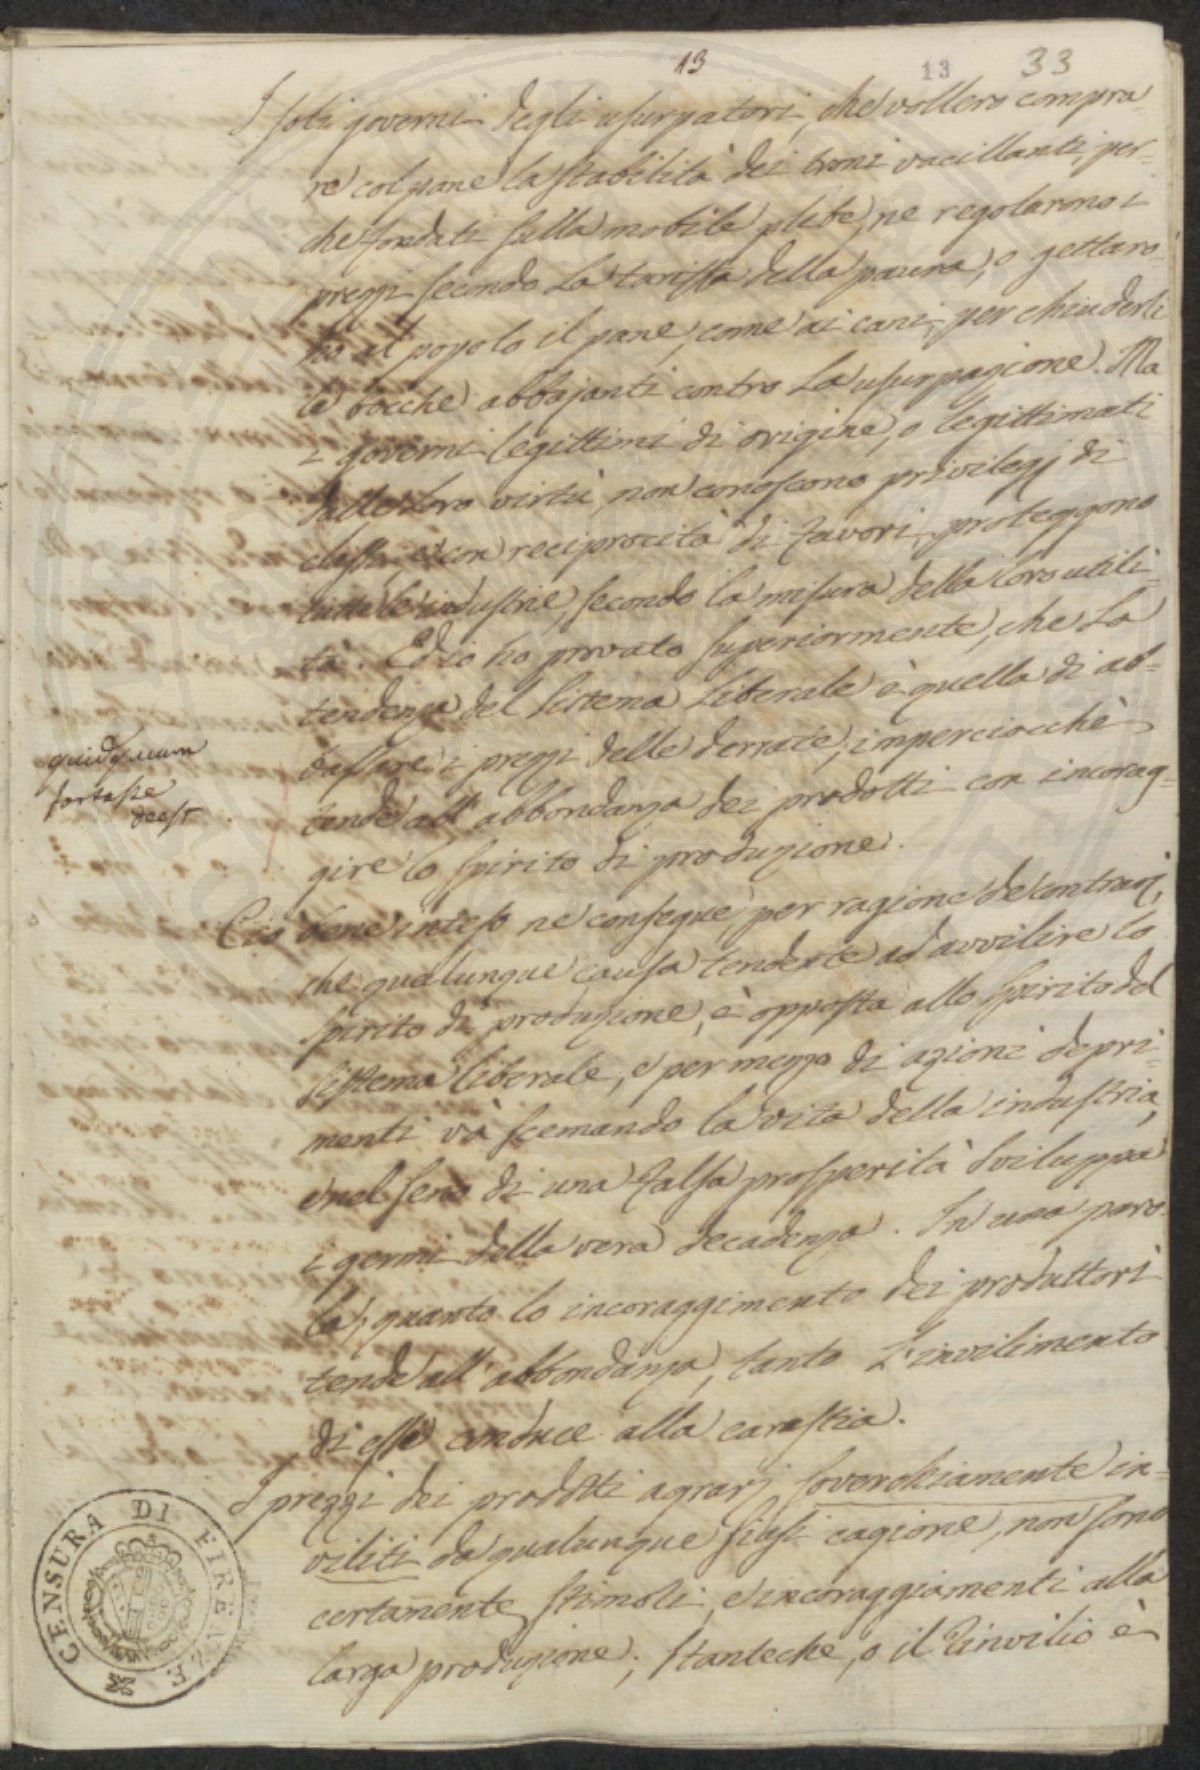 13
13
33
I soli governi degli usurpatori, che vollero compra-
re col pane la stabilità dei troni vacillanti, per-
che fondati sulla mobile plebe, ne regolarono i
prezzi secondo la tariffa della paura, o gettaro-
no al popolo il pane, come ai cani, per chiuderli
le bocche abbajanti contro la usurpazione. Ma
i governi legittimi di origine, o legittimati
dalle loro virtù, non conoscono privilegj di
classe, e con reciprocità di favori, proteggono
tutte le industrie, secondo la misura della loro utili-
tà. Ed io ho provato superiormente, che la
tendenza del sistema liberale è quella di ab-
bassare i prezzi delle derrate; imperciocchè
tende all'abbondanza dei prodotti con incorag-
gire lo spirito di produzione.
quidquam
fortasse
deest
Ciò bene inteso ne consegue, per ragione de contrarj,
che qualunque causa tendente ad avvilire lo
spirito di produzione, è opposta allo spirito del
sistema liberale, e per mezzo di azioni depri-
menti và scemando la vita della industria,
e nel seno di una falsa prosperità sviluppa
i germi della vera decadenza. In una paro-
la, quanto lo incoraggimento dei produttori
tende all'abbondanza, tanto l'invilimento
di essi conduce alla carestia.
I prezzi dei prodotti agrarj soverchiamente in-
viliti da qualunque siasi cagione, non sono
certamente stimoli, e incoraggiamenti alla
larga produzione; stanteche, o il rinvilio è
CENSURA DI FIRENZE